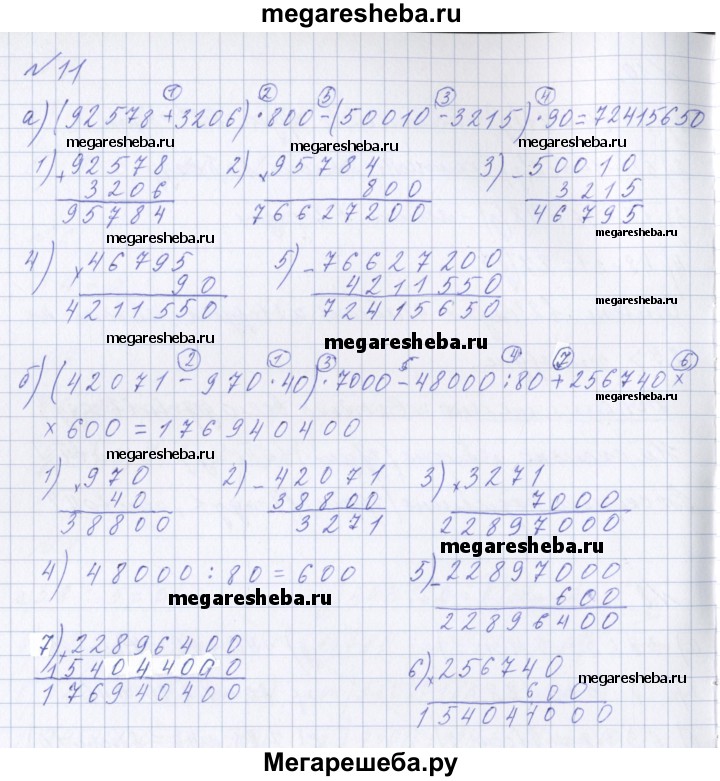 megaresheba.ru
№ 11
а) (92578 + 3206) · 800 - (50010 - 3215) · 90 = 72415650
① ② ⑤ ③ ④
megaresheba.ru megaresheba.ru
1) + 92578
3206
95784
2) × 95784
800
76627200
3) - 50010
3215
46795
megaresheba.ru megaresheba.ru
4) × 46795
90
4211550
5) - 76627200
4211550
72415650
megaresheba.ru
megaresheba.ru
megaresheba.ru
② ① ③ 5 ④ ⑦ ⑥
б) (42071 - 970 · 40) · 7000 - 48000 : 80 + 256740 ×
megaresheba.ru
× 600 = 176940400
megaresheba.ru
1) × 970
40
38800
2) - 42071
38800
3271
3) × 3271
7000
22897000
megaresheba.ru
megaresheba.ru
4) 48000 : 80 = 600
megaresheba.ru
5) - 22897000
600
22896400
7) + 22896400
154044000
176940400
6) × 256740
600
154044000
Мегарешеба.ру